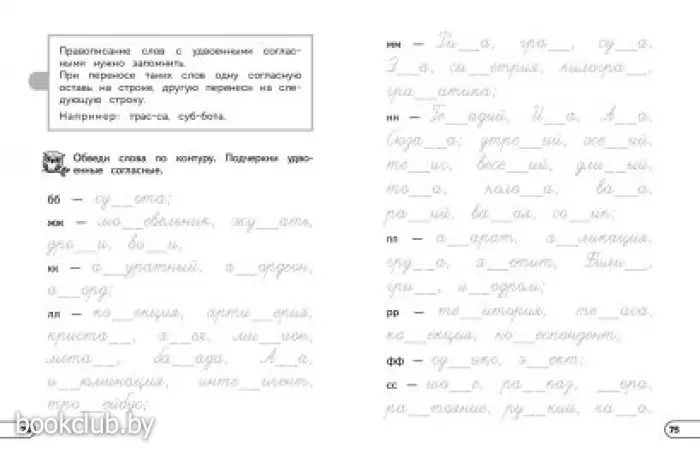 Правописание слов с удвоенными соглас-
ными нужно запомнить.
При переносе таких слов одну согласную
оставь на строке, другую перенеси на сле-
дующую строку.
Например: трас-са, суб-бота.
Обведи слова по контуру. Подчеркни удво-
енные согласные.
бб — су__ота;
жж — мо__евельник, жу__ать,
дро__и, во__и;
кк — а__уратный, а__ордеон,
а__орд;
лл — ко__екция, арти__ерия,
криста__, а__ея, ми__ион,
мета__, ба__ада, А__а,
и__юминация, инте__игент,
тро__ейбус;
мм — Ри__а, гра__, су__а,
Э__а, си__етрия, килогра__,
гра__атика;
нн — Ге__адий, И__а, А__а,
Сюза__а; утре__ий, осе__ий,
те__ис, весе__ий, дли__ый,
то__а, коло__а, ва__а,
ра__ий, ва__ая, со__ик;
пп — а__арат, а__ликация,
гру__а, а__етит, Фили__,
гри__, и__одром;
рр — те__итория, те__аса,
ко__екция, ко__еспондент;
фф — э__ект;
сс — шо__е, ра__каз, __ора,
ра__тояние, ру__кий, ка__а,
75
bookclub.by